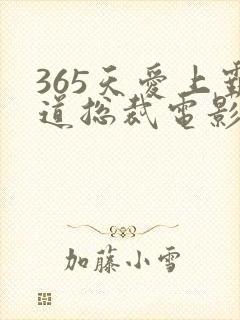 365天爱上霸
道总裁电影
加藤小雪